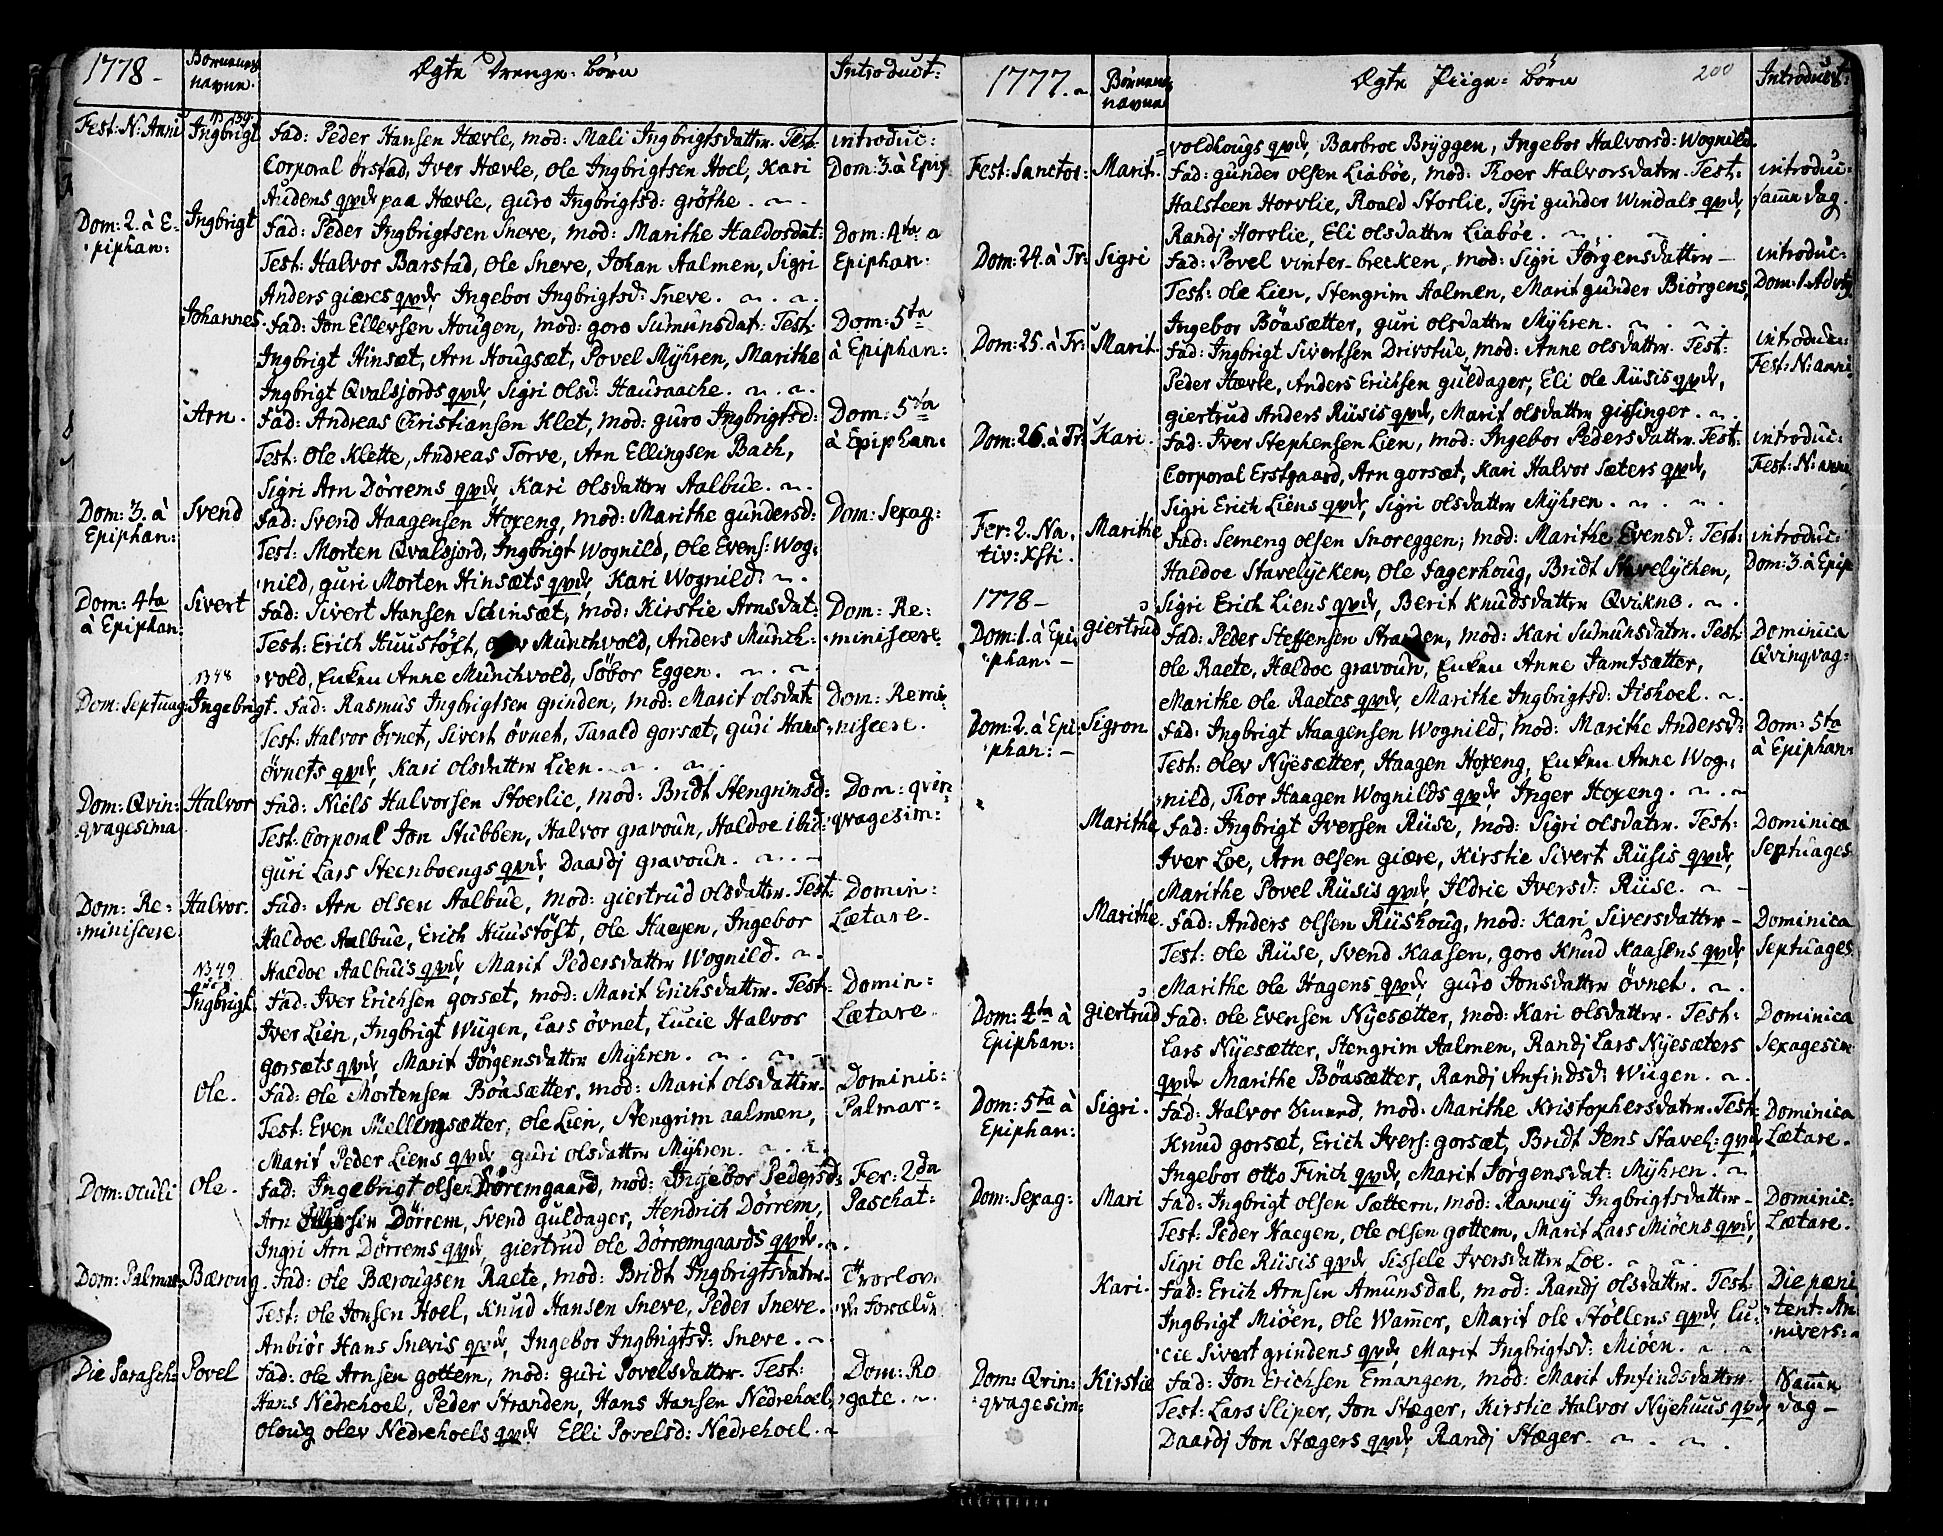 1778 – Børnenes navne. Ægte Drenge-børn Introduct:
Fest: N: Anni Ingbrigt Fad: Peder Hansen Hævle, mod: Mali Ingbrigtsdatter. Test: introduc:
Corporal Ørstad, Iver Hævle, Ole Ingbrigtsen Hoel, Kari Dom: 3. à Epif
Audens qvde paa Hævle, guro Ingbrigtsd: gröthe.
Dom: 2. à E- Ingbrigt Fad: Peder Ingbrigtsen Sneve, mod: Marithe Haldosdat: Dom: 4ta a
piphan: Test: Halvor Barstad, Ole Sneve, Johan Aalmen, Sigri Epiphan:
Anders giæres qvde, Ingebor Ingbrigtsd: Sneve.
Johannes. Fad: Jon Ellevsen Hougen, mod: goro Sumunsdat: Test: Dom: 5ta
Ingbrigt Hinsæt, Arn Hougsæt, Povel Myhren, Marithe à Epiphan:
Ingbrigt Qvalsjords qvde, Sigri Olsd: Hauraache.
Arn. Fad: Andreas Christiansen Klet, mod: guro Ingbrigtsd: Dom: 5ta
Test: Ole Klette, Andreas Torve, Arn Ellingsen Bach, à Epiphan:
Sigri Arn Dörrems qvde, Kari Olsdatter Aalbue.
Dom: 3. à Svend Fad: Svend Haagensen Hoxeng, mod: Marithe gundersd: Dom: Sexag:
Epiphan: Test: Morten Qvalsjord, Ingbrigt Wognild, Ole Evens: Wog-
nild, guri Morten Hinsæts qvde, Kari Wognild.
Dom: 4ta Sivert Fad: Sivert Hansen Schinsæt, mod: Kirstie Arnsdat: Dom: Re-
à Epiphan: Test: Erich Huustöft, Munchvold, Anders Munch- miniscere
vold, Enken Anne Munchvold, Söbor Eggen.
Dom: Septuag: Ingebrigt. Fad: Rasmus Ingbrigtsen grinden, mod: Marit olsdat: Dom: Remi-
Test: Halvor Övnet, Sivert Övnet, Tarald gorsæt, guri Hans niscere.
Övnets qvde, Kari olsdatter Lien.
Dom: Qvin- Halvor Fad: Niels Halvorsen Stoerlie, mod: Bridt Stengrimsd: Dom: qvin-
qvagesima Test: Corporal Jon Stubben, Halvor gravoun, Haldoe ibid: qvagesim:
guri Lars Steenboengs qvde, Daardj gravoun.
Dom: Re- Halvor. Fad: Arn olsen Aalbue, mod: giertrud olsdatter. Test: Domin:
miniscere Haldoe Aalbue, Erich Huustöft, Ole Haegen, Ingebor Lætare.
Haldoe Aalbuis qvde, Marit Pedersdatter Wognild.
Ingbrigt Fad: Iver Erichsen gorsæt, mod: Marit Erichsdatter. Test: Domin:
Iver Lien, Ingbrigt Wiigen, Lars övnet, Lucie Halvor Lætare.
gorsæts qvde, Marit Jörgensdatter Myhren.
Ole. Fad: Ole Mortensen Böasætter, mod: Marit olsdatter. Dominic:
Test: Even Mellemsætter, Ole Lien, Stengrim aalmen, Palmar:
Marit Peder Liens qvde, guri olsdatter Myhren.
Dom: Oculi Ole. Fad: Ingebrigt olsen Dörremgaard, mod: Ingebor Pedersd: Fer: 2da
Arn Dörrem, Svend guldager, Hendrich Dörrem, Paschat:
Ingri Arn Dörrems qvde, giertrud Ole Dörremgaards qvde.
Dom: Palmar: Bæroug. Fad: Ole Bærougsen Raete, mod: Bridt Ingbrigtsdatter.
Test: Ole Jonsen Hoel, Knud Hansen Sneve, Peder Sneve.
Anbiör Hans Snevis qvde, Ingebor Ingbrigtsd: Sneve.
Die Parasch: Povel Fad: Ole Arnsen gottem, mod: guri Povelsdatter. Test: Dom: Ro-
Hans Nedrehoel, Peder Stranden, Hans Hansen Nedrehoel, gate.
Oloug olev Nedrehoels qvde, Elli Povelsd: Nedrehoel.
1777. Børnenes navne Ægte Piige-börn 200 Introduct:
voldhougs qvde, Barbroe Bryggen, Ingebor Halvorsd: Wognild.
Fest: Sanctor: Marit. Fad: gunder olsen Liaböe, mod: Thoer Halvorsdatter. Test: introduc:
Halsteen Horvlie, Roald Storlie, Tyri gunder Windals qvde, samme dag.
Randj Horvlie, Eli olsdatter Liaböe.
Dom: 24. à Tr: Sigri Fad: Povel vinter-brecken, mod: Sigri Jörgensdatter – introduc:
Test: Ole Lien, Stengrim Aalmen, Marit gunder Biörgens, Dom: 1. Adv:
Ingebor Böasætter, guri olsdatter Myhren.
Dom: 25. à Tr: Marit. Fad: Ingbrigt Sivertsen Drivstue, mod: Anne olsdatter. Test: introduc:
Peder Hævle, Anders Erichsen guldager, Eli Ole Riisis qvde, Fest: N: anni
giertrud Anders Riisis qvde, Marit olsdatter gissinger.
Dom: 26. à Tr: Kari. Fad: Iver Stephensen Lien, mod: Ingebor Pedersdatter. Test: introduc:
Corporal Erstgaard, Arn gorsæt, Kari Halvor Sæters qvde, Fest: N: anni
Sigri Erich Liens qvde, Sigri olsdatter Myhren.
Fer: 2. Na- Marithe Fad: Semeng olsen Snoreggen, mod: Marithe Evensd: Test: introduc:
tiv: Xsti. Haldoe Stavelycken, Ole Fagerhoug, Bridt Stavelychen, Dom: 3. à Epip
1778 – Sigri Erich Liens qvde, Berit Knudsdatter Qvikne.
Dom: 1. à Epi- giertrud Fad: Peder Steffensen Stranden, mod: Kari Sumunsdatr. Test: Dominica
phan: – Ole Raete, Haldoe gravoun, Enken Anne Jamtsætter, Qvinqvag:
Marithe Ole Raetes qvde, Marithe Ingbrigtsd: Fishoel.
Dom: 2. à Epi- Sigron Fad: Ingbrigt Haagensen Wognild, mod: Marithe Andersd: Dom: 5ta
phan: – Test: Olev Nyesætter, Haagen Hoxeng, Enken Anne Wog- à Epiphan:
nild, Thor Haagen Wognilds qvde, Inger Hoxeng.
Marithe Fad: Ingbrigt Iversen Riise, mod: Sigri olsdatter. Test: Dominica
Iver Loe, Arn olsen giære, Kirstie Sivert Riisis qvde, Septuages
Marithe Povel Riisis qvde, Ildrie Iversd: Riise.
Marithe. Fad: Anders olsen Riishoug, mod: Kari Siversdatter – Dominica
Test: Ole Riise, Svend Kaasen, goro Knud Kaasens qvde, Septuages
Marithe Ole Hagens qvde, guro Jonsdatter övnet.
Dom: 4ta à giertrud Fad: Ole Evensen Nyesætter, mod: Kari olsdatter. Test: Dominica
Epiphan: Lars Nyesætter, Stengrim Aalmen, Randj Lars Nyesæters Sexagesim
qvde, Marithe Böasætter, Randj Anfindsd: Wiigen.
Dom: 5ta à Sigri. Fad: Halvor, mod: Marithe Kristophersdatter. Test: Dominica
Epiphan: Knud gorsæt, Erich Ivers: gorsæt, Bridt Jens Stavel: qvde, Lætare.
Ingebor Otto Finch qvde, Marit Jörgensdat: Myhren.
Dom: Sexag: Mari Fad: Ingbrigt olsen Sættern, mod: Ranney Ingbrigtsdatter – Dominic:
Test: Peder Haegen, Ole olsen gottem, Marit Lars Miöens qvde, Lætare.
Sigri Ole Riisis qvde, Sissele Iversdatter Loe.
Kari. Fad: Erich Arnsen Amunsdal, mod: Randj olsdatter. Test: Die pæni-
Ingbrigt Miöen, Ole Wammer, Marit Ole Stöllens qvde, Lu- tent: An-
cie Sivert grindens qvde, Marit Ingbrigtsd: Miöen. nivers:
Dom: Qvin- Kirstie Fad: Jon Erichsen Emangen, mod: Marit Anfindsdatter. Samme
qvagesim: Test: Lars Sliper, Jon Stæger, Kirstie Halvor Nyehuus qvde, dag –
Daardj Jon Stægers qvde, Randj Stæger.